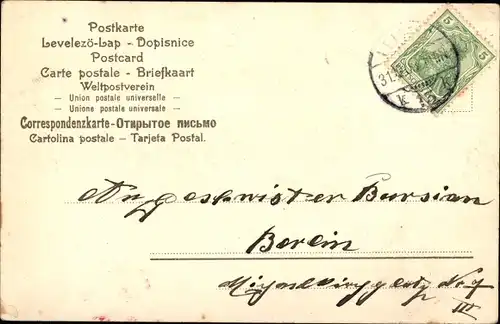 Postkarte
Levelező-Lap - Dopisnice
Postcard
Carte postale - Briefkaart
Weltpostverein
- Union postale universelle -
- Unione postale universale -
Correspondenzkarte-Открытое письмо
Cartolina postale - Tarjeta Postal.
5 5
31.
Geschwister Bursian
Berlin
No 9
III